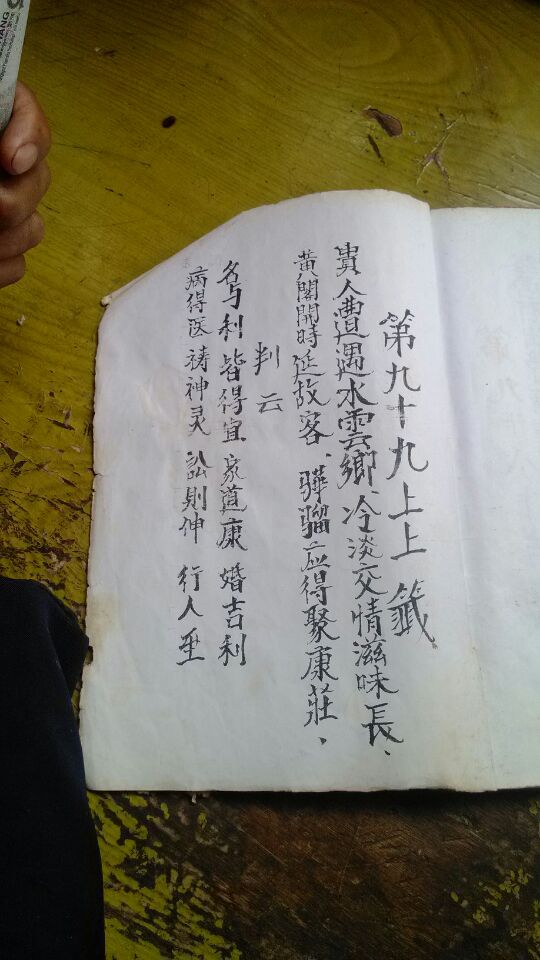 第九十九上上籤
貴人遭遇水雲鄉、冷淡交情滋味長、
黄閣開時延故客、骅骝应得聚康莊、
判云
名与利 皆得宜 家道康 婚吉利
病得医 祷神灵 訟則伸 行人至